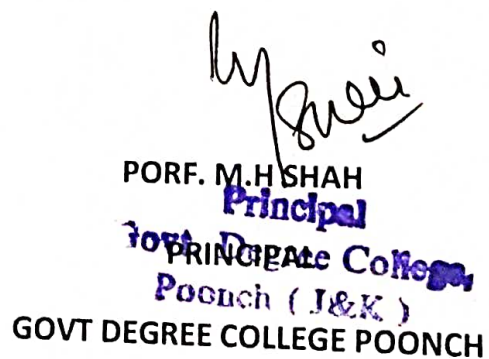 PORF. M.H SHAH
Principal
Govt. Degree College,
PRINCIPAL
Poonch ( J&K )
GOVT DEGREE COLLEGE POONCH